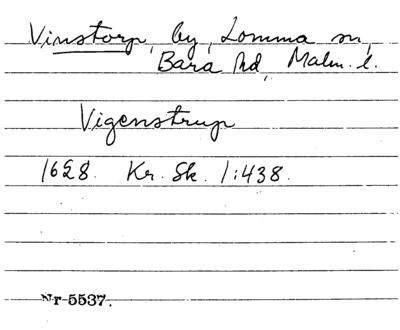 Vinstorp, by, Lomma sn,
Bara hd, Malm. l.
Vigenstrup
1628. Kr. Sk. 1:438.
Nr 5537.